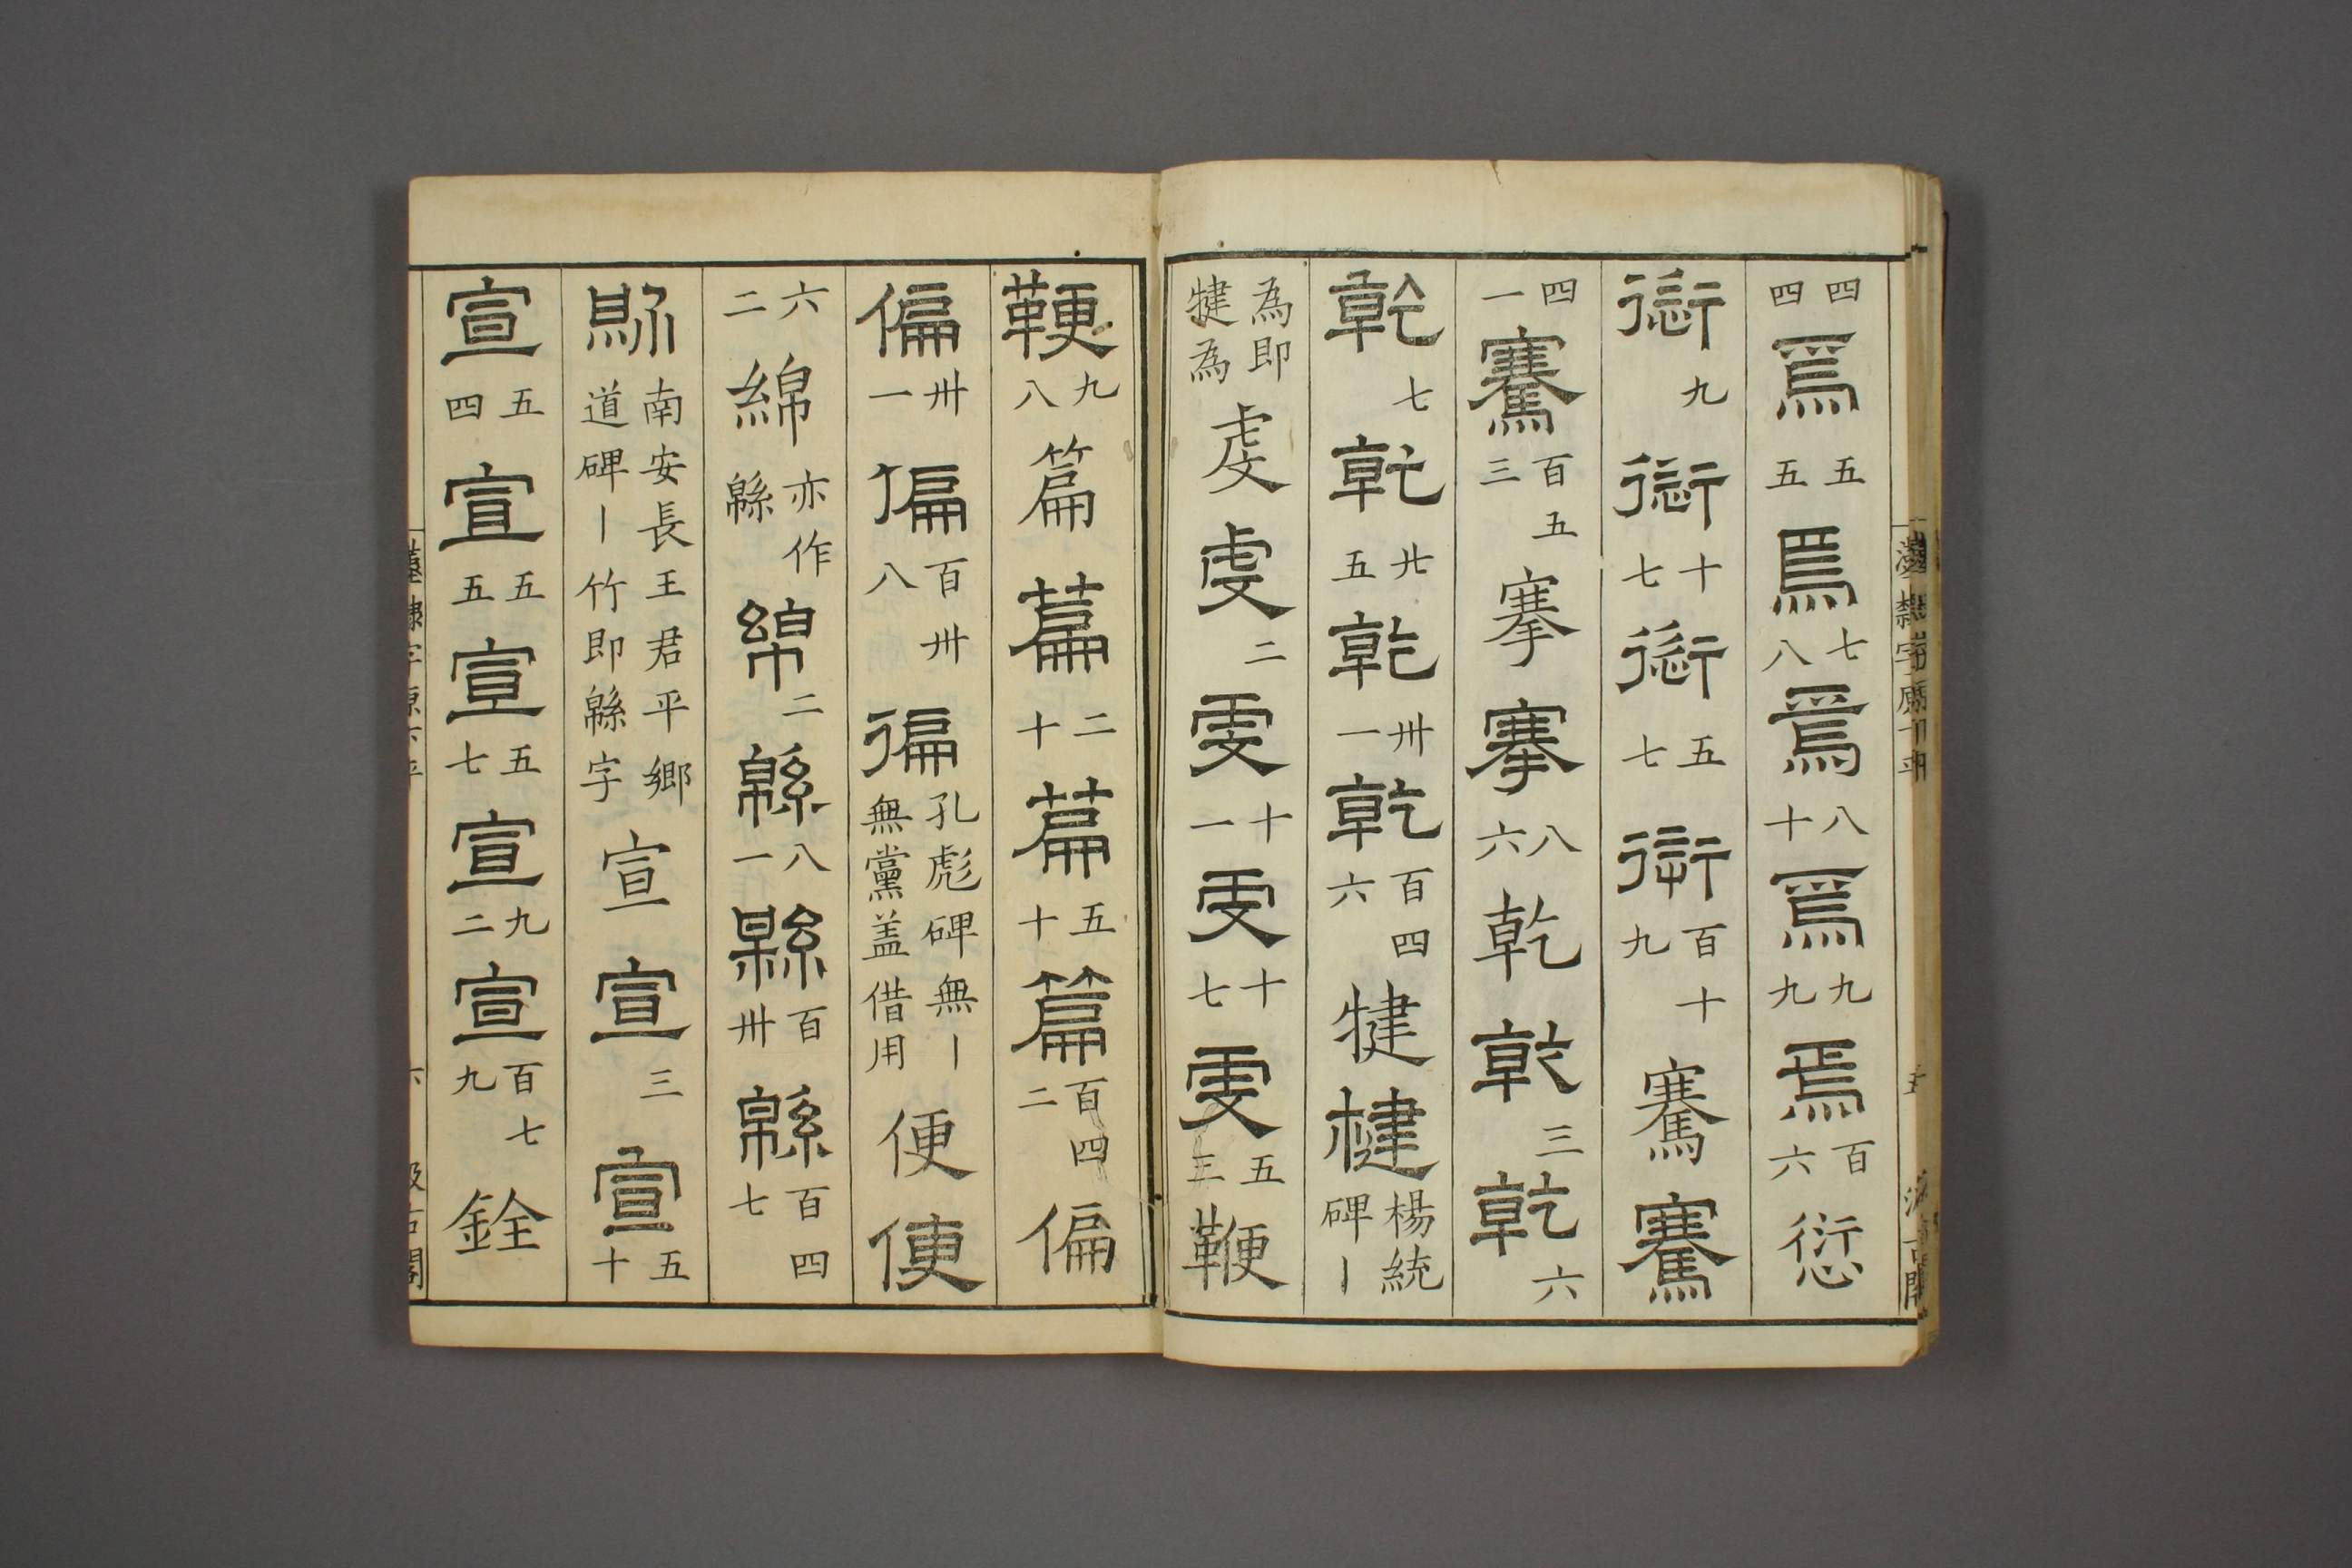 四四焉五五焉七八焉八十焉九九焉百六愆
衍九衍十七衍五七衍百十九騫騫
四一騫百五三搴搴八六乾乾三乾六
乾七乾廿五乾卅一乾百四六犍楗楊統碑丨
為即犍為虔虔二虔十一虔十七虔五三鞭
鞭九八篇篇二十篇五十篇百四二偏
偏卅一偏百卅八徧孔彪碑無丨無黨盖借用便便
六二綿亦作緜綿二緜八一緜百卅緜百四七
緜南安長王君平鄉道碑丨竹即緜字宣宣三宣五十
宣五四宣五五宣五七宣九二宣百七九銓